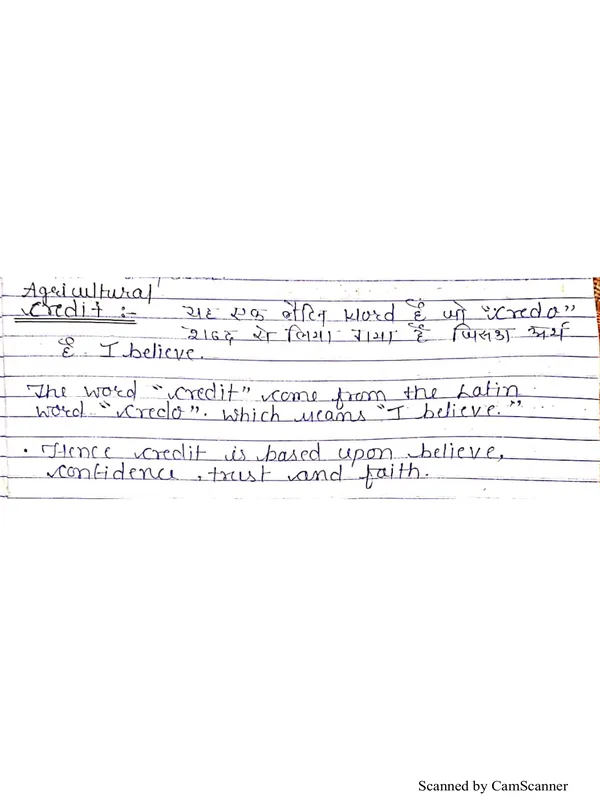 Agricultural
Credit :- यह एक लैटिन word है जो "credo"
शब्द से लिया गया है जिसका अर्थ
है I believe.
The word "credit" come from the Latin
word "credo". which means "I believe."
• Hence credit is based upon believe,
confidence, trust and faith.
Scanned by CamScanner